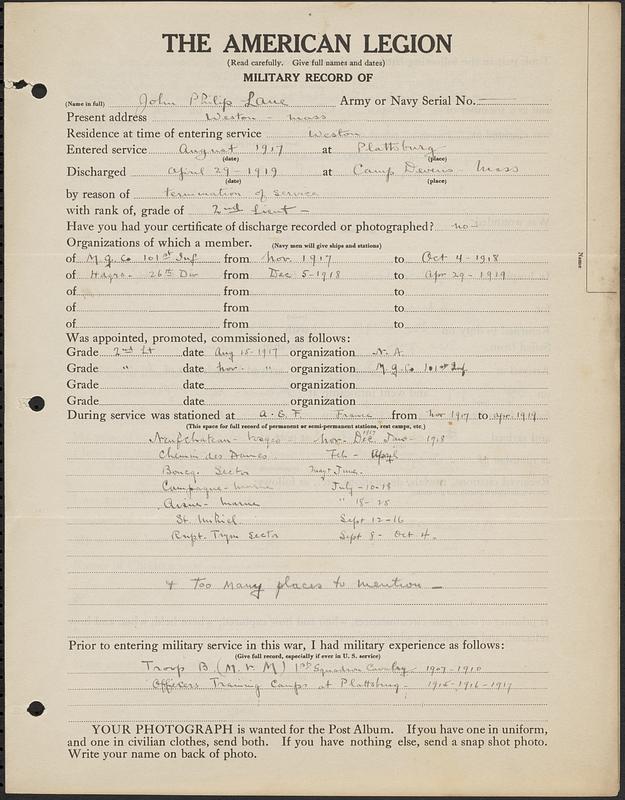 THE AMERICAN LEGION
(Read carefully. Give full names and dates)
MILITARY RECORD OF
(Name in full) John Philip Lane Army or Navy Serial No. —
Present address Weston - Mass
Residence at time of entering service Weston
Entered service August 1917 at Plattsburg
(date) (place)
Discharged April 29 - 1919 at Camp Devens - Mass
(date) (place)
by reason of termination of service
with rank, of grade of 2nd Lieut —
Have you had your certificate of discharge recorded or photographed? no
Organizations of which a member. (Navy men will give ships and stations)
of M.G. Co 101st Inf from Nov. 1917 to Oct 4 - 1918
of Hdqrs. 26th Div from Dec 5 - 1918 to Apr 29 - 1919
of from to
of from to
of from to
Was appointed, promoted, commissioned, as follows:
Grade 2nd Lt date Aug 15 - 1917 organization N. A.
Grade " date Nov. " organization M.G. Co 101st Inf
Grade date organization
Grade date organization
During service was stationed at A.E.F. France from Nov 1917 to Apr. 1919
(This space for full record of permanent or semi-permanent stations, rest camps, etc.)
Neufchateau - Vosges Nov. Dec. 1917 Jan - 1918
Chemin des Dames Feb - April
Boucq. Sector May + June.
Campagne - Marne July - 10 - 18
Aisne - Marne " 18 - 25
St. Mihiel Sept 12 - 16
Rupt. Troyon Sector Sept 8 - Oct 4.
+ Too many places to mention —
Prior to entering military service in this war, I had military experience as follows:
(Give full record, especially if ever in U. S. service)
Troop B. (M.V.M) 1st Squadron Cavalry 1907 - 1910
Officers Training Camps at Plattsburg - 1915 - 1916 - 1917
YOUR PHOTOGRAPH is wanted for the Post Album. If you have one in uniform,
and one in civilian clothes, send both. If you have nothing else, send a snap shot photo.
Write your name on back of photo.
Name